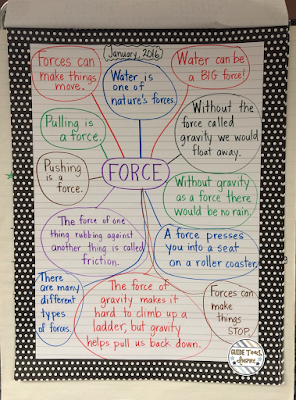 (January, 2016)
Forces can
make things
move.
Water is
one of
nature's forces.
Water can be
a BIG force!
Pulling is
a force.
Without the
force called
gravity we would
float away.
Pushing
is a
force.
FORCE
Without gravity
as a force there
would be no rain.
The force of one
thing rubbing against
another thing is called
friction.
A force presses
you into a seat
on a roller coaster.
There
are many
different
types
of forces.
The force of
gravity makes it
hard to climb up a
ladder, but gravity
helps pull us back down.
Forces can
make
things
STOP.
GUIDE Teach